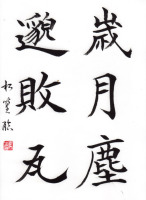 歲月塵
邈敗瓦
松臨